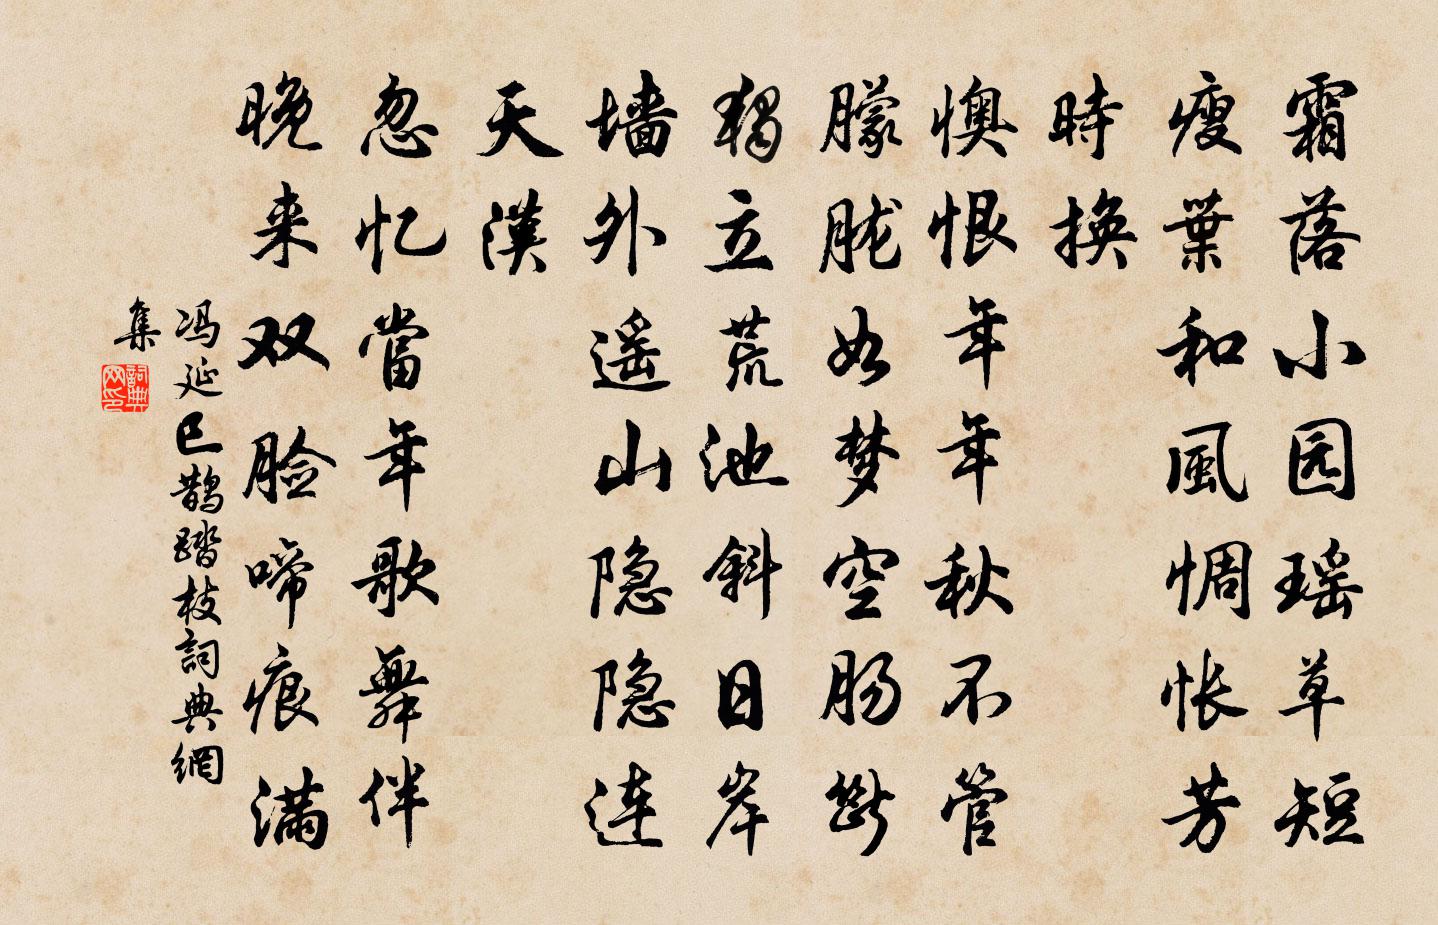 霜落小园瑶草短
瘦葉和風惆怅芳
時换
懊恨年年秋不管
朦胧如梦空肠断
獨立荒池斜日岸
墙外遥山隐隐连
天漢
忽忆當年歌舞伴
晚来双脸啼痕满
冯延巳鹊踏枝詞典網
集
詞典网印